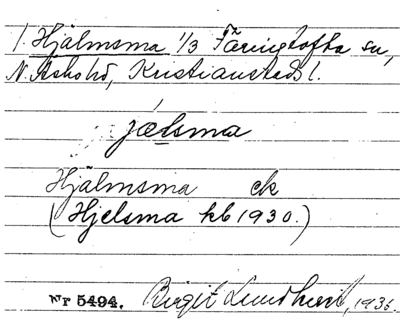 1. Hjälmsma 1/3 Färingtofta sn,
N. Åsbo hd, Kristianstads l.
jælsma
Hjälmsma ek
(Hjelsma kb 1930.)
Nr 5494. Birgit 1936.